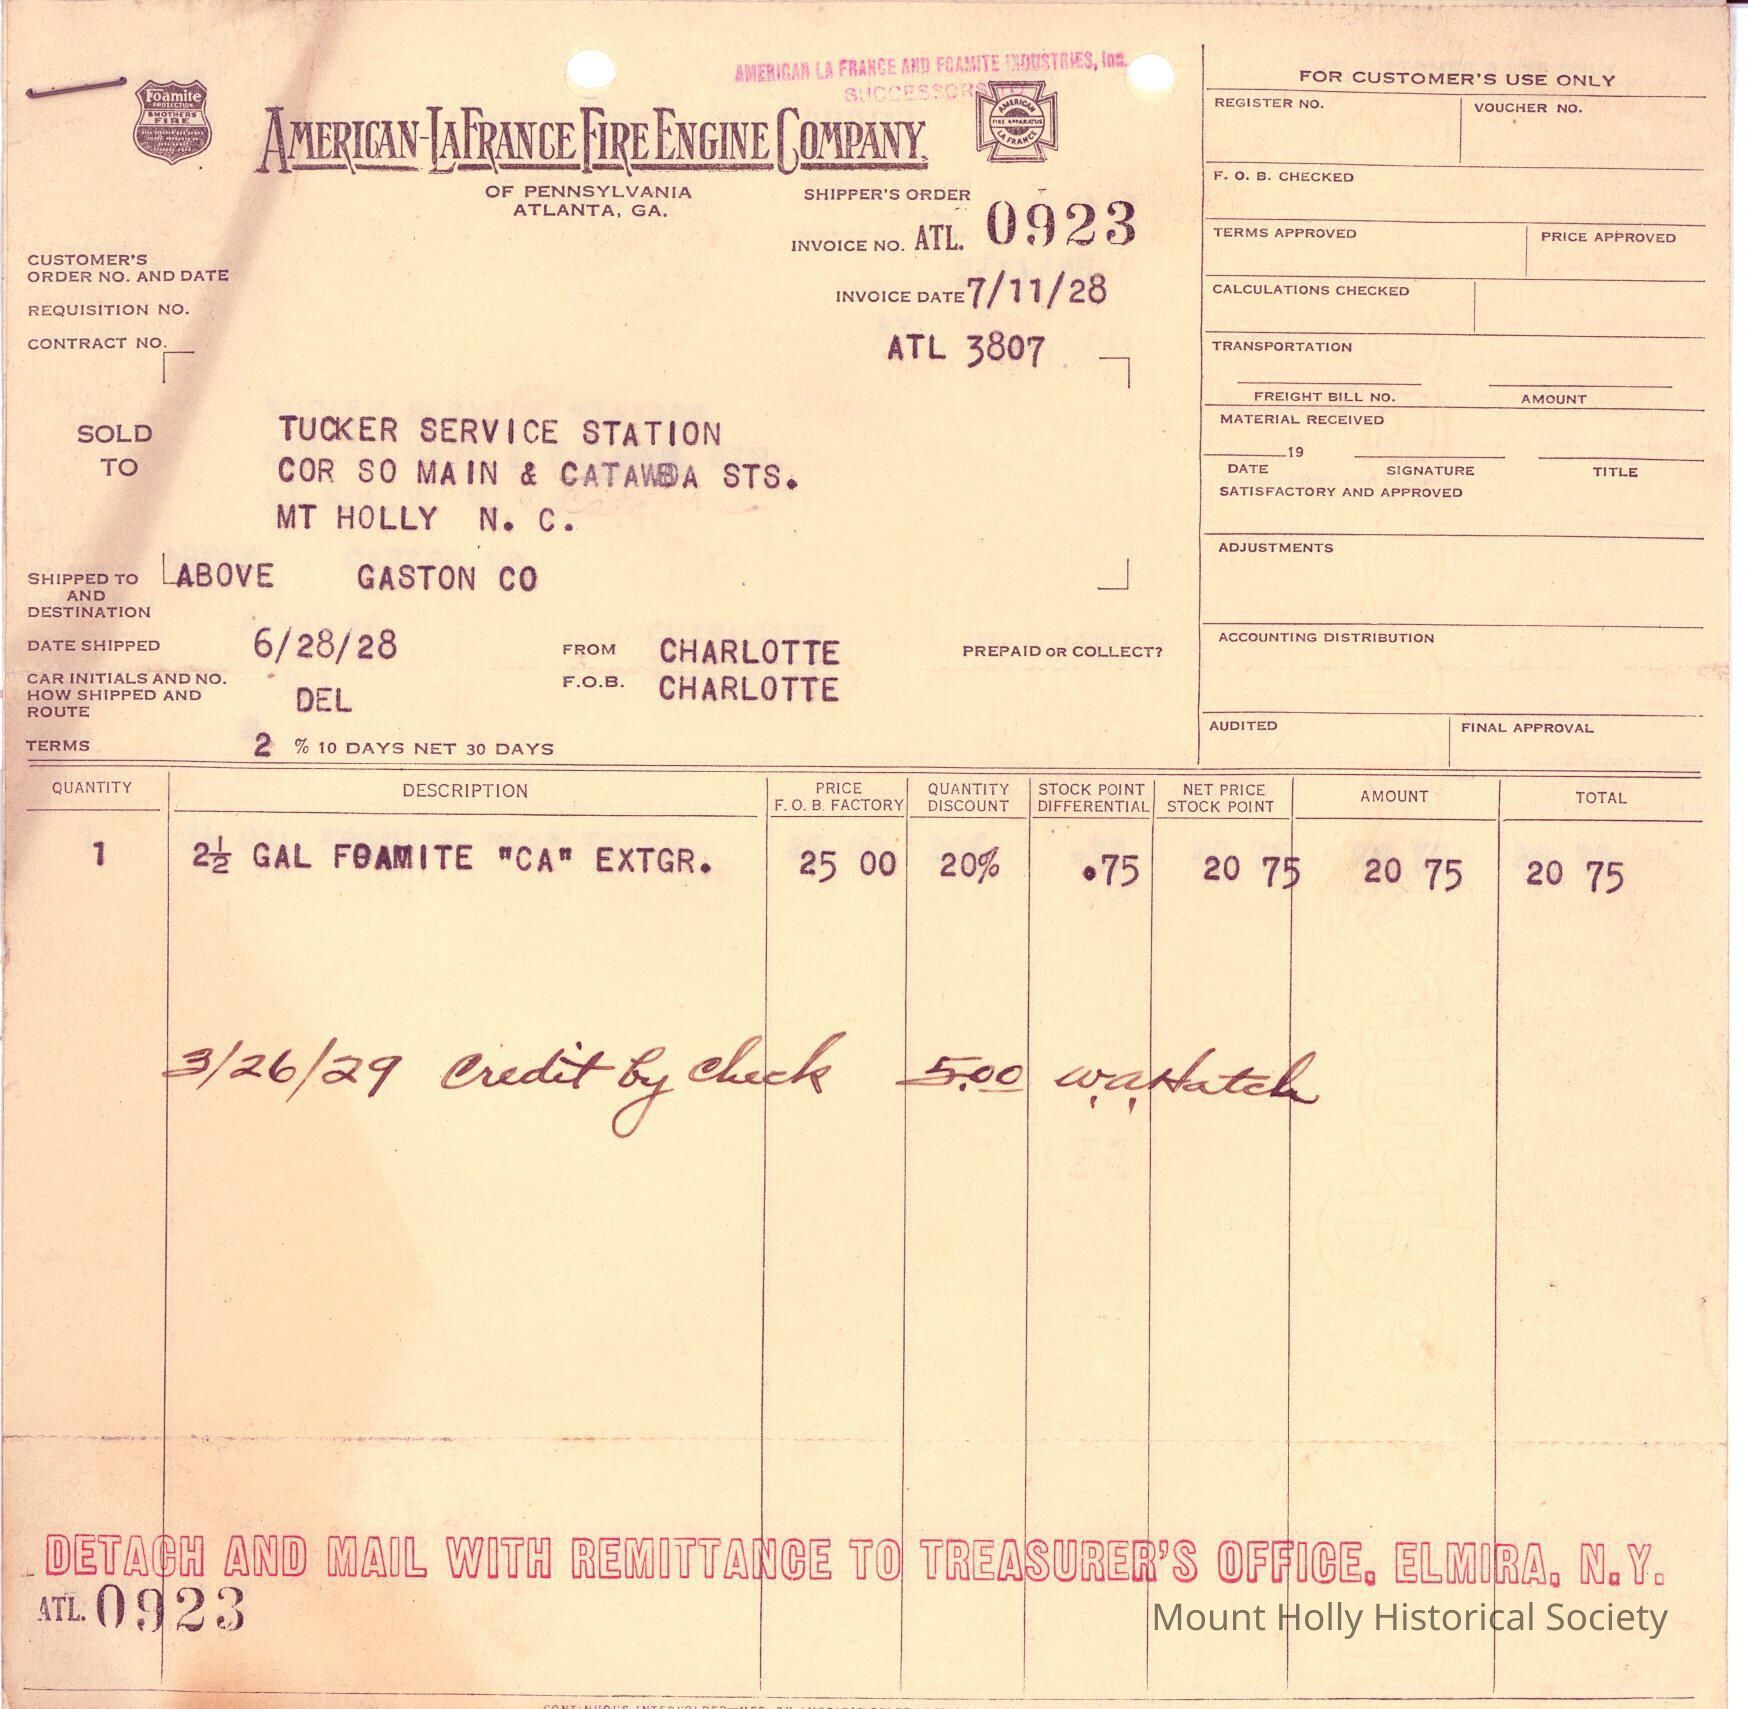 AMERICAN LA FRANCE AND FOAMITE INDUSTRIES, Inc.
SUCCESSORS TO
Foamite
PROTECTION
SMOTHERS
FIRE
AMERICAN-LAFRANCE FIRE ENGINE COMPANY,
AMERICAN
FIRE APPARATUS
LA FRANCE
OF PENNSYLVANIA
ATLANTA, GA.
SHIPPER'S ORDER
INVOICE NO. ATL. 0923
INVOICE DATE 7/11/28
ATL 3807
CUSTOMER'S
ORDER NO. AND DATE
REQUISITION NO.
CONTRACT NO.
SOLD
TO
TUCKER SERVICE STATION
COR SO MAIN & CATAWBA STS.
MT HOLLY N. C.
SHIPPED TO
AND
DESTINATION
ABOVE GASTON CO
DATE SHIPPED 6/28/28 FROM CHARLOTTE PREPAID OR COLLECT?
CAR INITIALS AND NO.
HOW SHIPPED AND
ROUTE
DEL F.O.B. CHARLOTTE
TERMS 2 % 10 DAYS NET 30 DAYS
FOR CUSTOMER'S USE ONLY
REGISTER NO. VOUCHER NO.
F. O. B. CHECKED
TERMS APPROVED PRICE APPROVED
CALCULATIONS CHECKED
TRANSPORTATION
FREIGHT BILL NO. AMOUNT
MATERIAL RECEIVED
19
DATE SIGNATURE TITLE
SATISFACTORY AND APPROVED
ADJUSTMENTS
ACCOUNTING DISTRIBUTION
AUDITED FINAL APPROVAL
QUANTITY DESCRIPTION PRICE F. O. B. FACTORY QUANTITY DISCOUNT STOCK POINT DIFFERENTIAL NET PRICE STOCK POINT AMOUNT TOTAL
1 2½ GAL FOAMITE "CA" EXTGR. 25 00 20% .75 20 75 20 75 20 75
3/26/29 Credit by check 5.00 W.A. Hatch
DETACH AND MAIL WITH REMITTANCE TO TREASURER'S OFFICE, ELMIRA, N.Y.
ATL. 0923
Mount Holly Historical Society